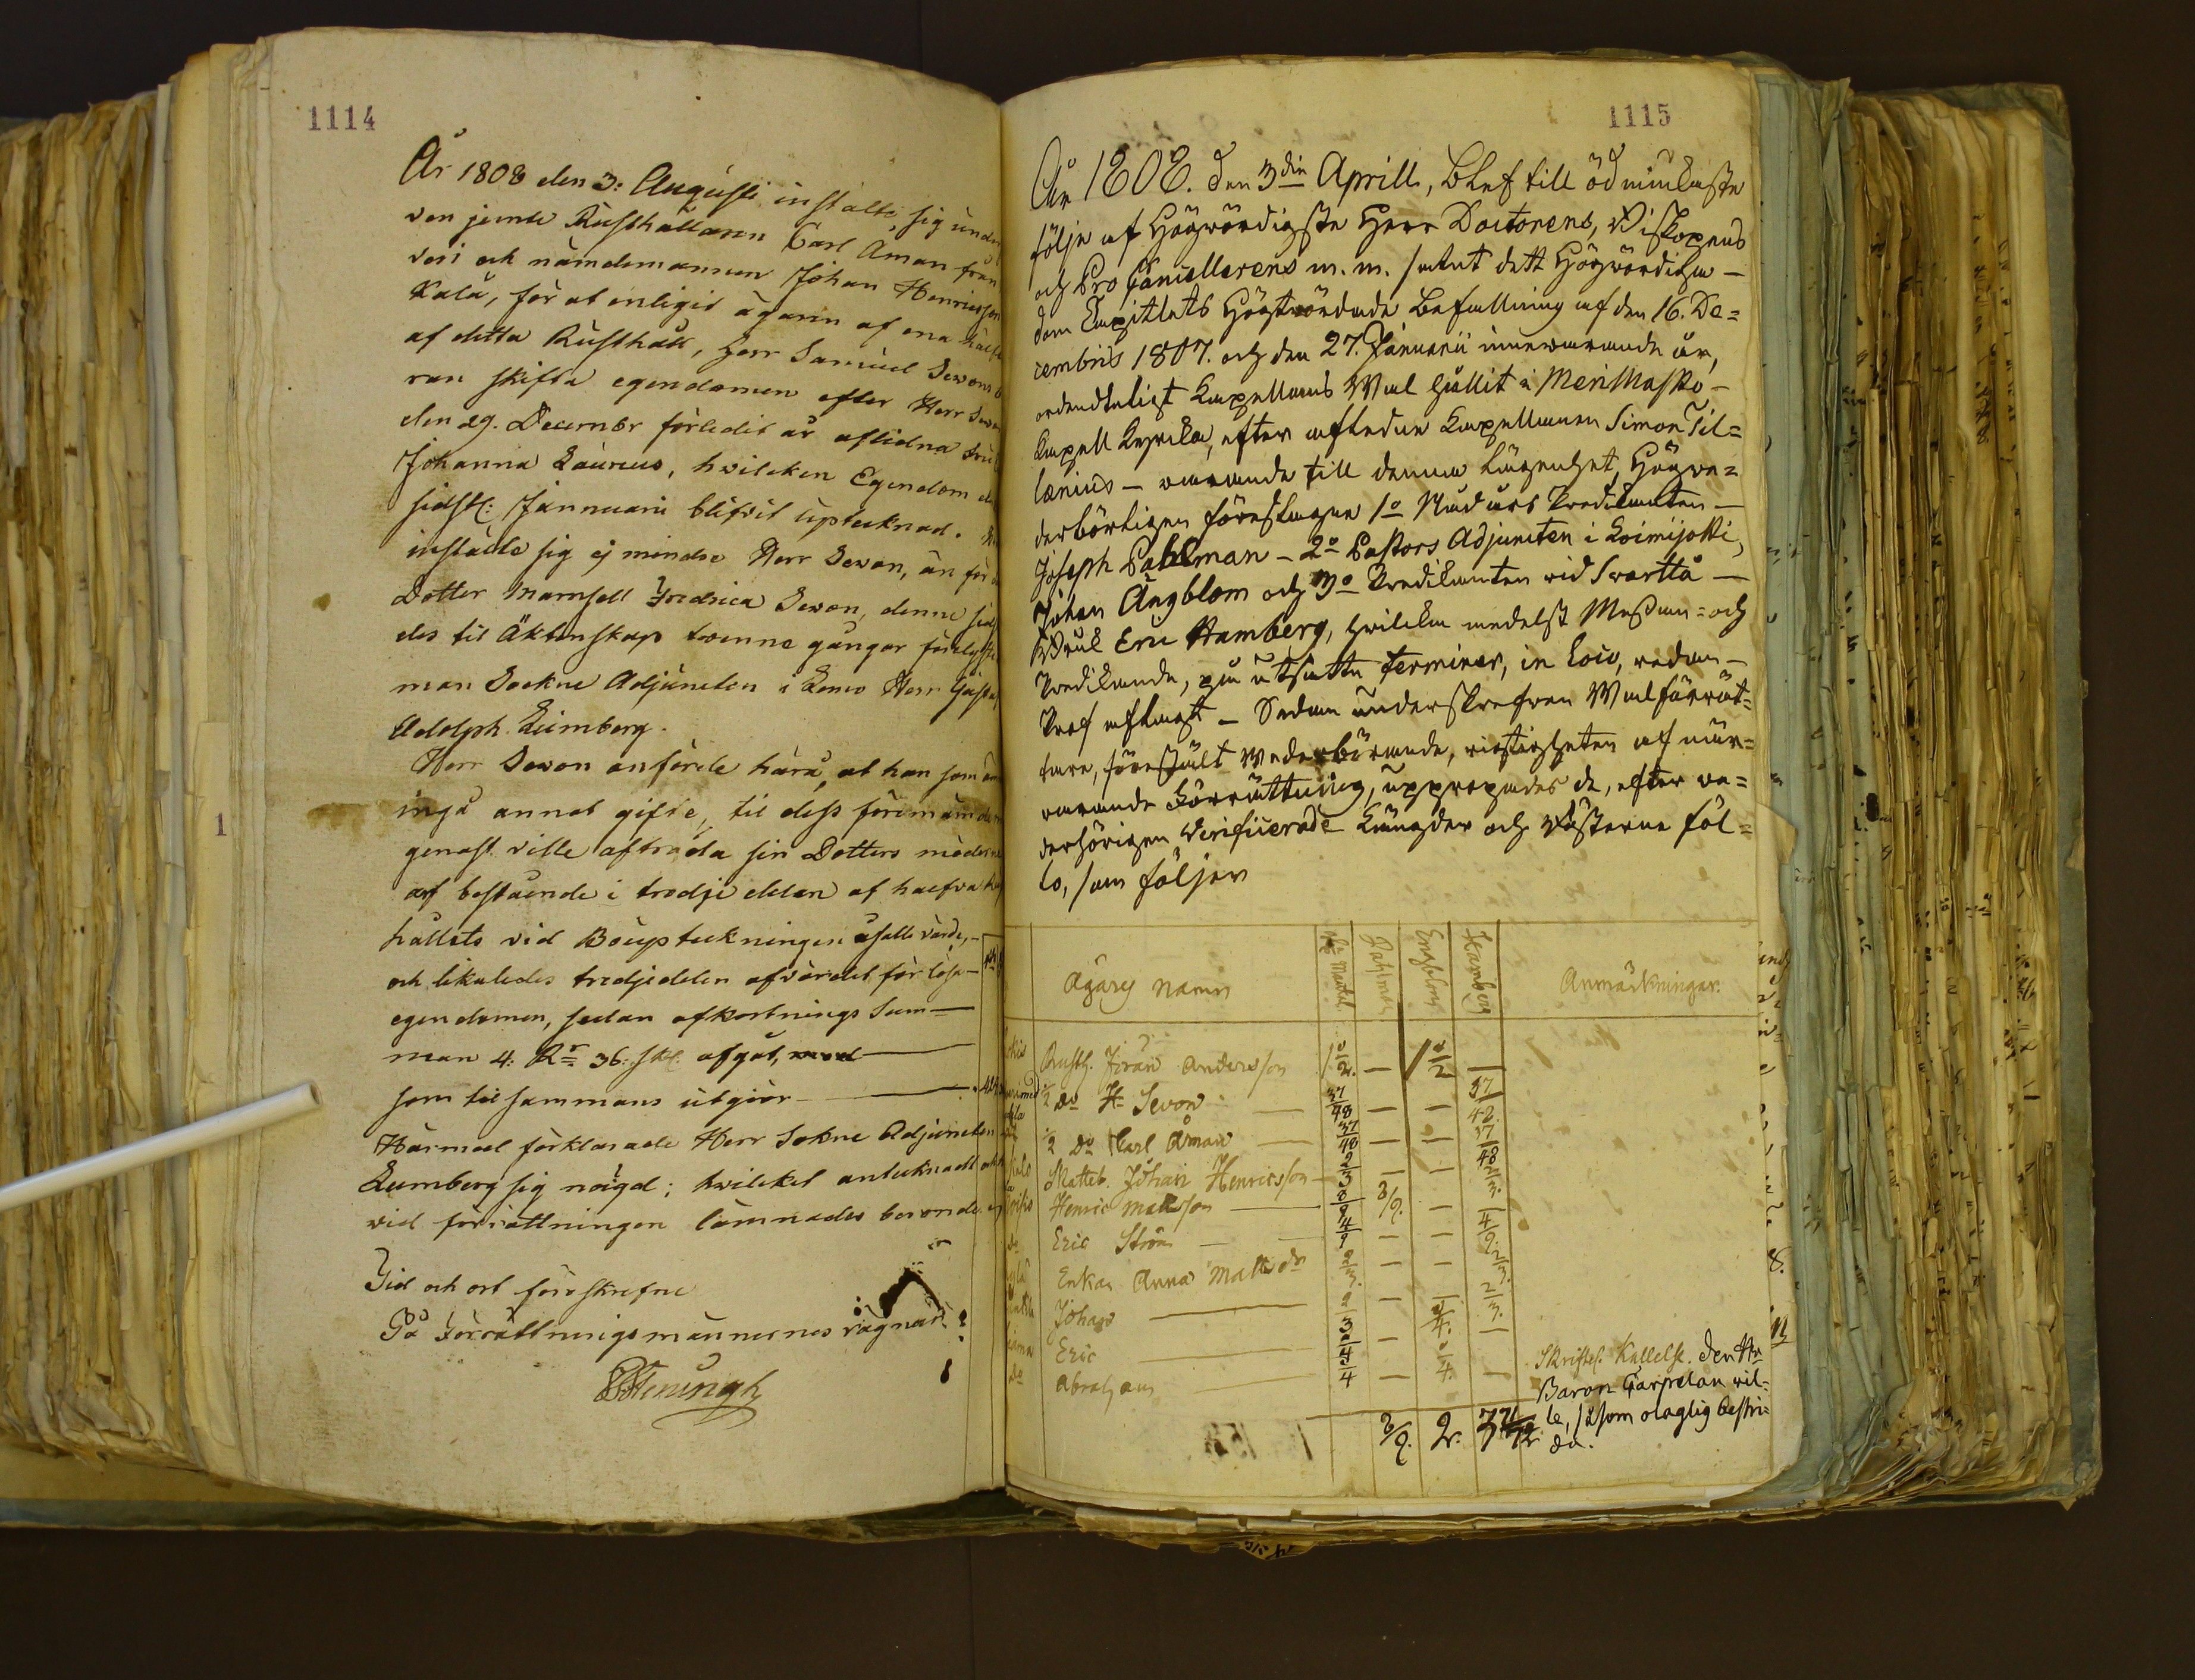 1114
År 1808 den 3: Augusti instälte sig
ven jemte Rusthållaren Carl Åman från
vesi och nämdemannen Johan Henricsson
Kala, för at enligit ägaren af ena
af detta Rusthåll, Herr Samuel Sewons
ran skifta egendomen efter Herr
den 29. December förledit år aflidna
Johanna Laureus, hvilcken Egendom
sidstl: Jannuarii blifvit uptecknad.
instälte sig ej mindre Herr Sewon, än för
Dotter Mamsell Fredrica Sewon, denne
des til Äktenskap tvenne gångor förelyste
man Sockne Adjuncten i Lemo Herr
Adolph Leimberg.
Herr Sewon anförde härå, at han som
ingå annat gifte, til dess förmån
genast ville afträda sin Dotters möderne
arf bestående i tredje delen af halfva
hållets vid Bouptekningen åsatte värde,
och likaledes tredjedelen af värdet för lösa
egendomen, sedan afkortnings Sum-
man 4: Rr 36: sk: afgåt,
som til sammans utgiör
Härmed förklarade Herr Sokne Adjuncten
Leimberg sig nöigd; hvilcket antecknadt
vid förrättningen lämnades
Tid och ort förrskrefne
På Förrättningsmännernes vägnar
1
1115
År 1808. den 3die Aprill, Blef till ödmiukaste
följe af Högwördigste Herr Doctorens, Biskopens
och Pro Cancellerens m. m. samt dett Högwördiga
Dom Capitlets Högtwördade Befallning af den 16. De=
cembris 1807. och den 27. Januarii innewarande år,
ordendteligt Kapellans Wal hållit i Merimasko
Kapell Kyrcka, efter afledne Kapellanen Simon Til=
lænius - warande till denna Lägenhet, Högve=
derbörligen föreslagne 1o Nådårs Predikanten
Joseph Pahlman - 2o Pastors Adjuncten i Loimijoki,
Johan Ängblom och 3o Predikanten vid Svartå
Bruk Eric Hamberg, hvilcka medelst Messan= och
Predikande, på utsatte Terminer, in Loco, redan
Prof aflagt - Sedan underskrefven Walförrät=
tare, förestält Wederbörande, vigtigheten af när=
warande Förrättning, uppropades de, efter ve=
derbörigen Verificerade Längder och Rösterne föl=
lo, som följer
Ägarens Namn
Mantal
Pahlman
Engblom
Hamberg
Anmärkningar.
Rusth. Jöran Andersson
1/2 Do Hr Sevon
37/48
1/2 Do Carl Åman
37/48
Johan Henricsson
2/3
Henric Mattsson
8/9
8/9.
Eric Ström
4/9
4/9.
Enkan Anna Mattsdr
2/3.
2/3.
Johan
2/3
2/3.
Eric
3/4
3/4.
Abraham
3/4
3/4.
8/9.
2.
Skriftel. Kallelse. den Hr
Baron Carpelan vil-
le, såsom olaglig bestri-
da.